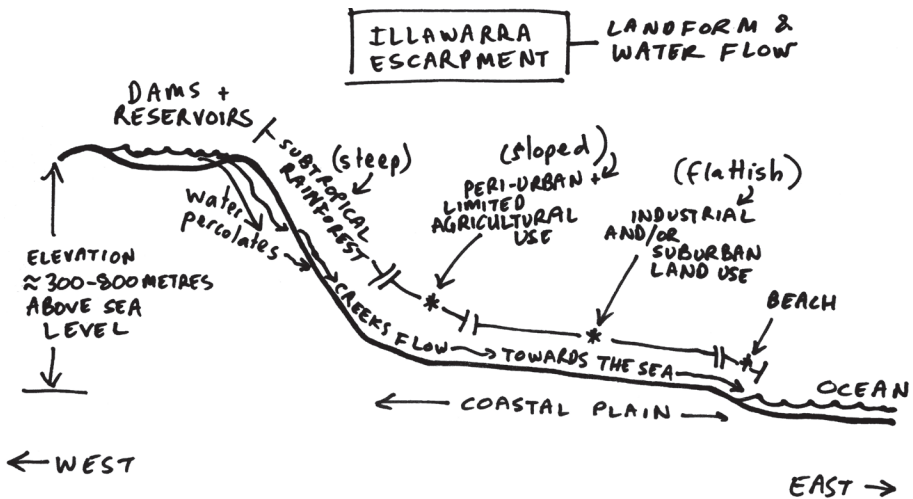 ILLAWARRA
ESCARPMENT
LANDFORM &
WATER FLOW
DAMS +
RESERVOIRS
SUBTROPICAL
RAINFOREST
(steep)
(sloped)
PERI-URBAN +
LIMITED
AGRICULTURAL
USE
(flattish)
INDUSTRIAL
AND/OR
SUBURBAN
LAND USE
BEACH
water
percolates
ELEVATION
≈300-800 METRES
ABOVE SEA
LEVEL
CREEKS FLOW → TOWARDS THE SEA
OCEAN
← COASTAL PLAIN →
← WEST
EAST →